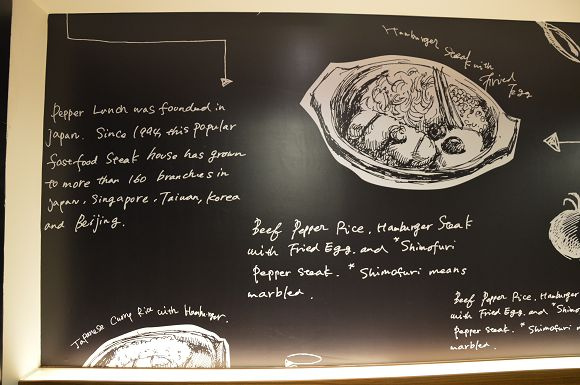 Pepper Lunch was founded in
Japan. Since 1994, this popular
fastfood steak house has grown
to more than 160 branches in
Japan. Singapore. Taiwan, Korea
and Beijing.
Hamburger Steak
with Fried
Egg
Beef Pepper Rice. Hamburger Steak
with Fried Egg. and *Shimofuri
Pepper steak. * Shimofuri means
marbled.
Japanese Curry Rice with Hamburger.
Beef Pepper Rice. Hamburger
with Fried Egg. and *Shimo
Pepper steak. * Shimofuri m
marbled.